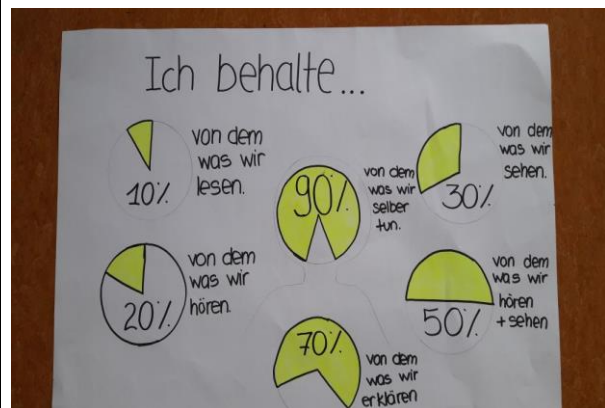 Ich behalte...
10%
von dem
was wir
lesen.
90%
von dem
was wir
selber
tun.
30%
von dem
was wir
sehen.
20%
von dem
was wir
hören.
50%
von dem
was wir
hören
+ sehen
70%
von dem
was wir
erklären